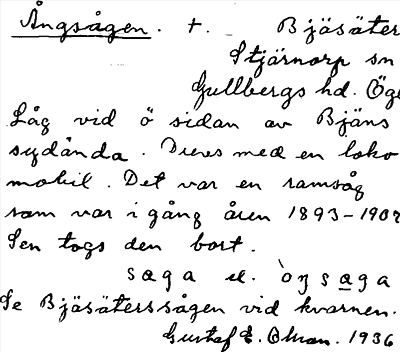 Ångsågen. +. Bjäsäter
Stjärnorp sn
Gullbergs hd. Ög
Låg vid ö sidan av Bjäns
sydända. Drevs med en loko
mobil. Det var en ramsåg
som var i gång åren 1893-1902
Sen togs den bort.
sæga el. òŋsaga
Se Bjäsäterssågen vid kvarnen.
Gustaf E. 1936